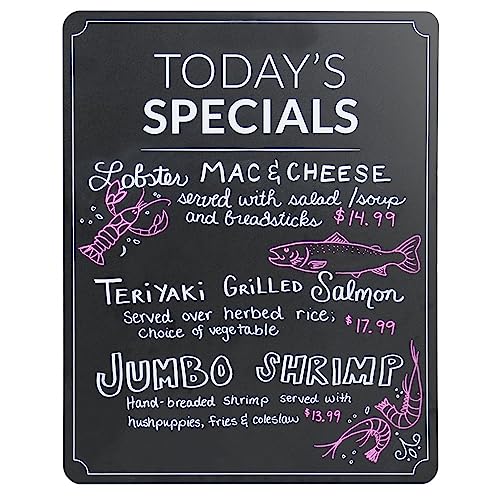 TODAY'S
SPECIALS
Lobster MAC & CHEESE
served with salad / soup
and breadsticks $14.99
TERIYAKI GRILLED Salmon
Served over herbed rice;
choice of vegetable $17.99
JUMBO SHRIMP
Hand-breaded shrimp served with
hushpuppies, fries & coleslaw $13.99